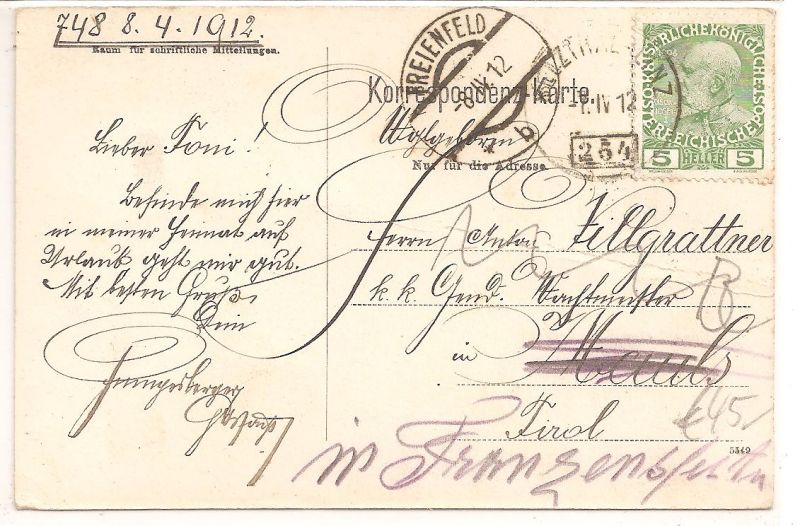 748 8.4.1912.
Raum für schriftliche Mitteilungen.
Lieber Toni!
Befinde mich hier
in meiner Heimat auf
Urlaub geht mir gut.
Mit besten Gruß
Dein
BREIENFELD
-8.IV.12
b
IV 12
N
254
K.K. ÖSTERREICHISCHE POST
5 HELLER 5
Korrespondenz-Karte.
Wolgeboren
Nur für die Adresse.
Herrn Anton Zillgrattner
k. k. Gend. Wachtmeister
in
Tirol
in Franzensfeste
€45
B
5549